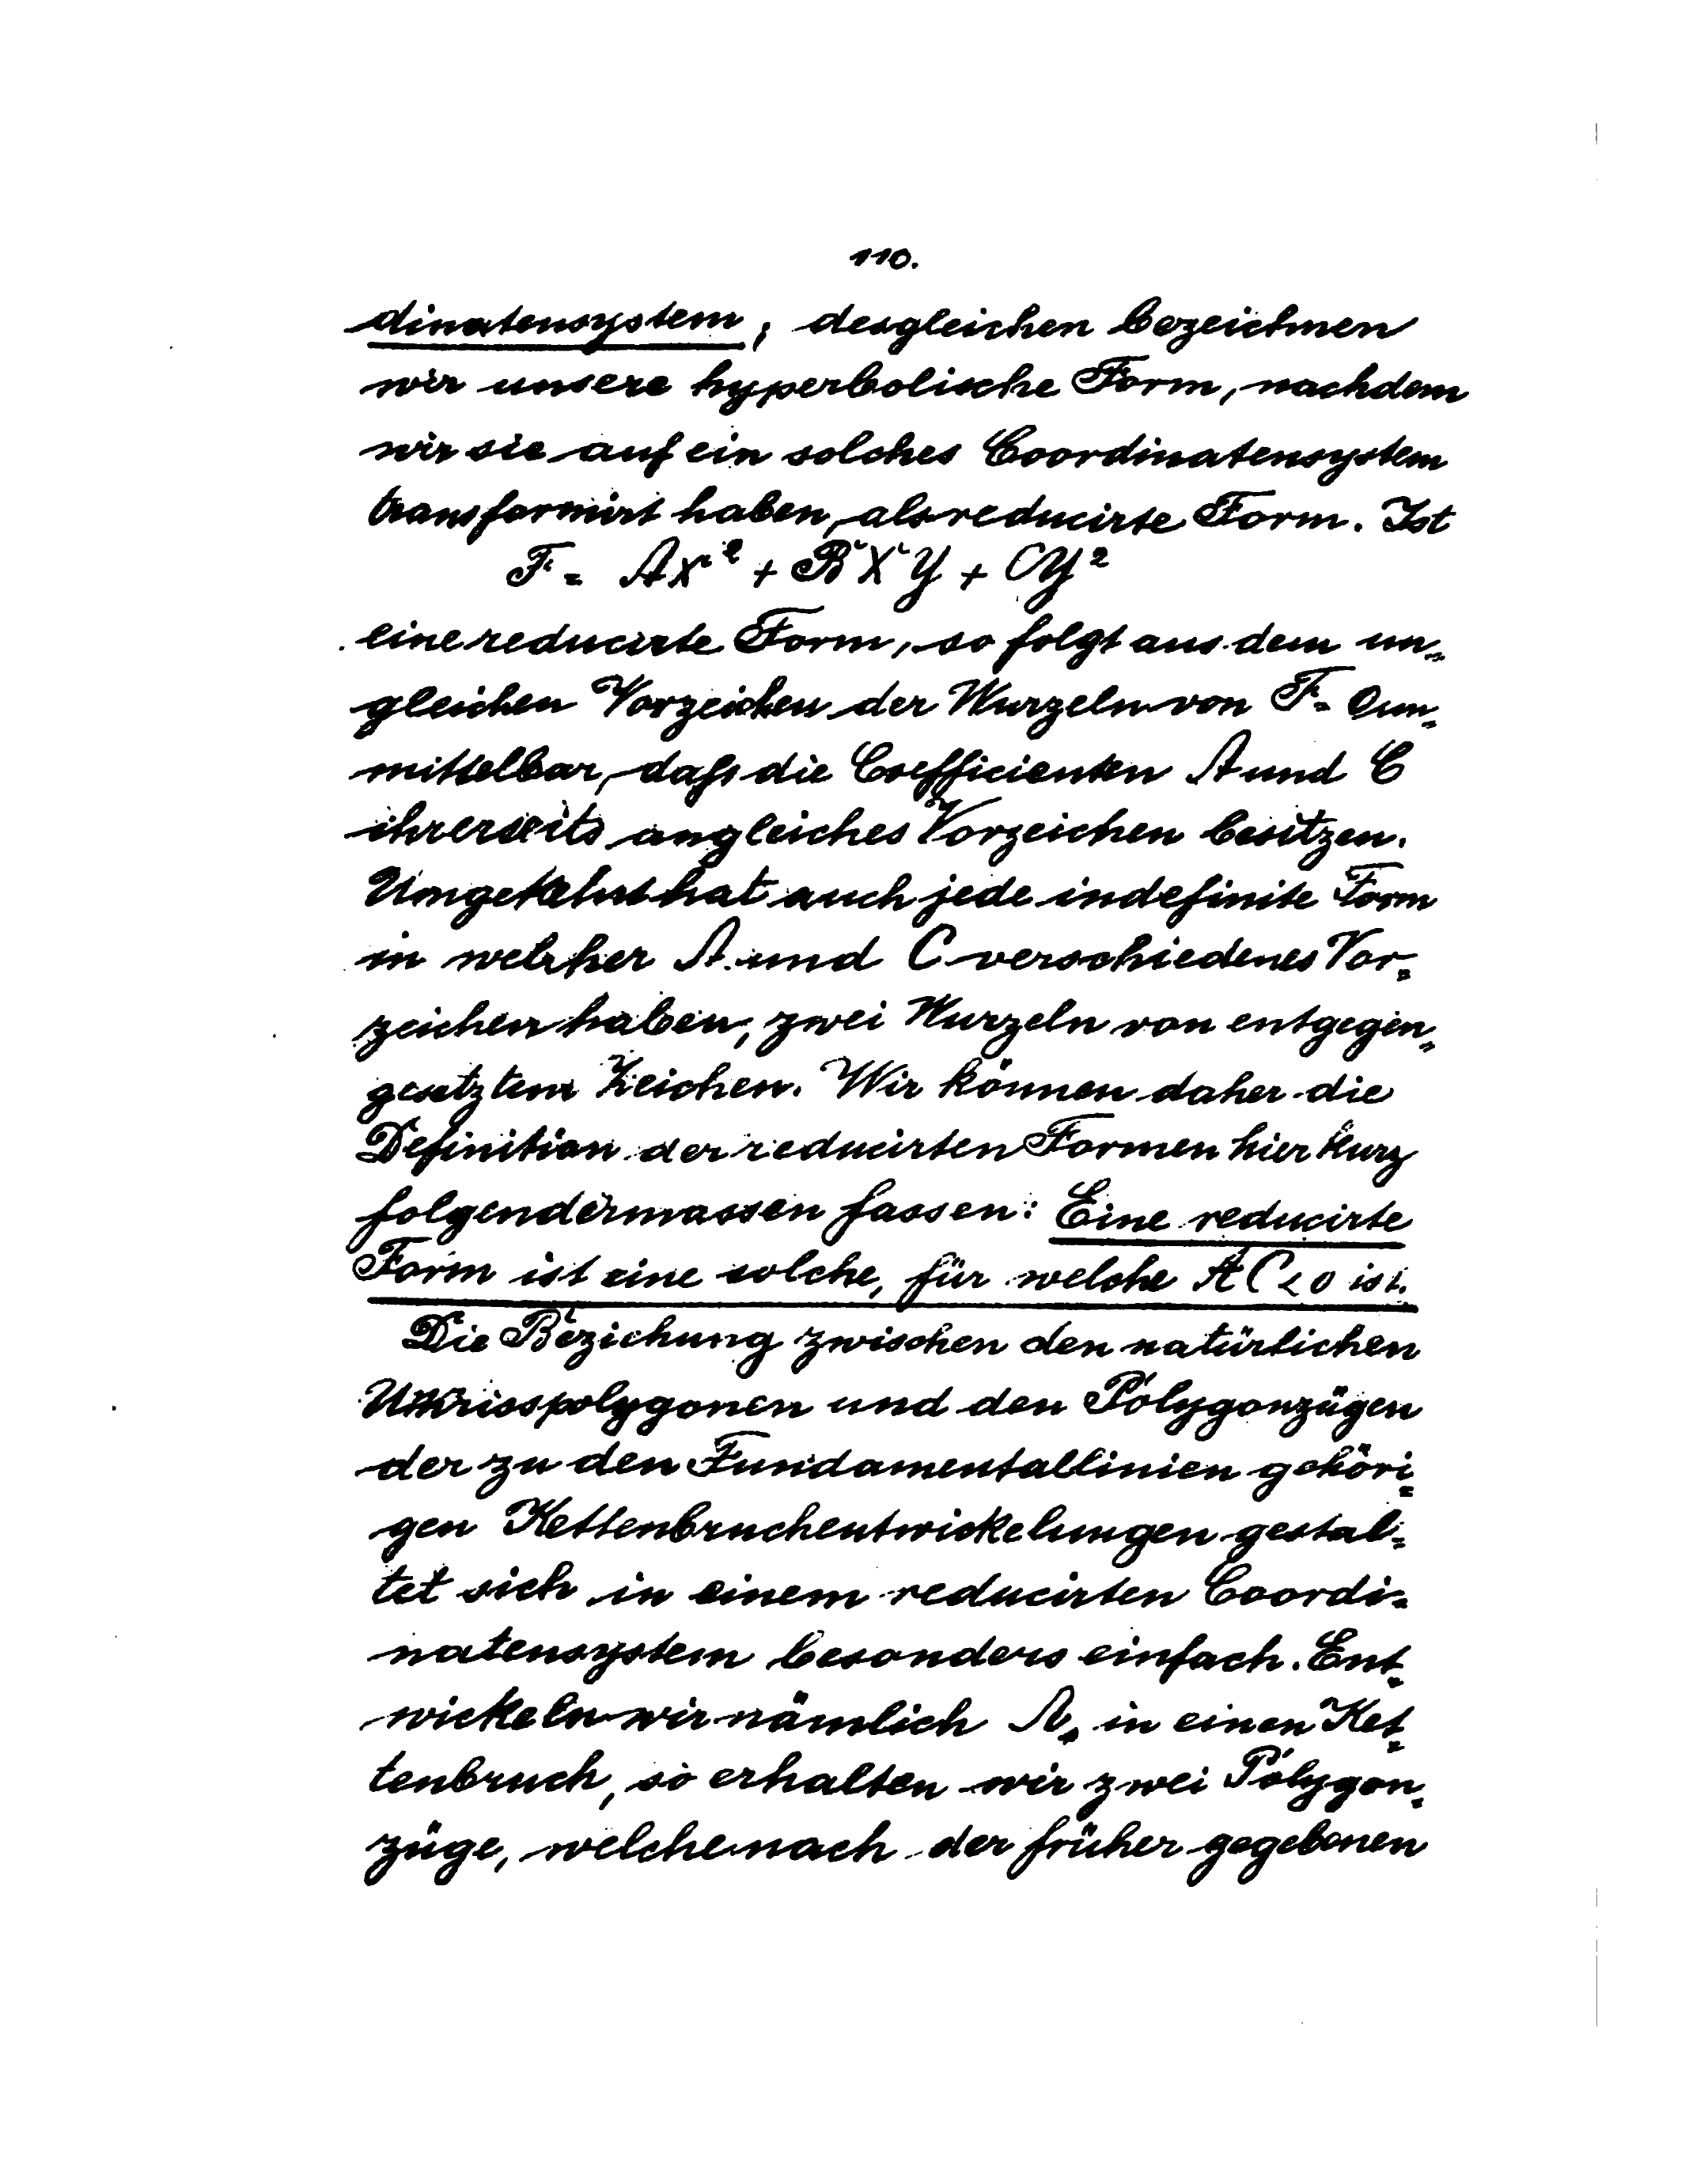 110.
dinatensystem; desgleichen bezeichnen
wir unsere hyperbolische Form, nachdem
wir sie auf ein solches Coordinatensystem
transformirt haben, als reducirte Form. Ist
F = AX² + BXY + CY²
eine reducirte Form, so folgt aus dem un=
gleichen Vorzeichen der Wurzeln von F = 0 un=
mittelbar, daſs die Coefficienten A und C
ihrerseits ungleiches Vorzeichen besitzen.
Umgekehrt hat auch jede indefinite Form
in welcher A und C verschiedenes Vor=
zeichen haben, zwei Wurzeln von entgegen=
gesetztem Zeichen. Wir können daher die
Definition der reducirten Formen hier kurz
folgendermassen fassen: Eine reducirte
Form ist eine solche, für welche AC < 0 ist.
Die Beziehung zwischen den natürlichen
Umrisspolygonen und den Polygonzügen
der zu den Fundamentallinien gehöri=
gen Kettenbruchentwickelungen gestal=
tet sich in einem reducirten Coordi=
natensystem besonders einfach. Ent=
wickeln wir nämlich in einen Ket=
tenbruch, so erhalten wir zwei Polygon=
züge, welche nach der früher gegebenen